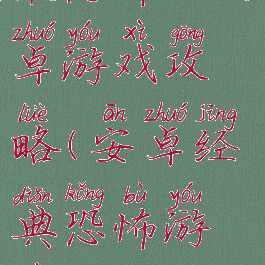 zhuó yóu xì gōng
卓游戏攻
lüè ān zhuó jīng
略(安卓经
diǎn kǒng bù yóu
典恐怖游